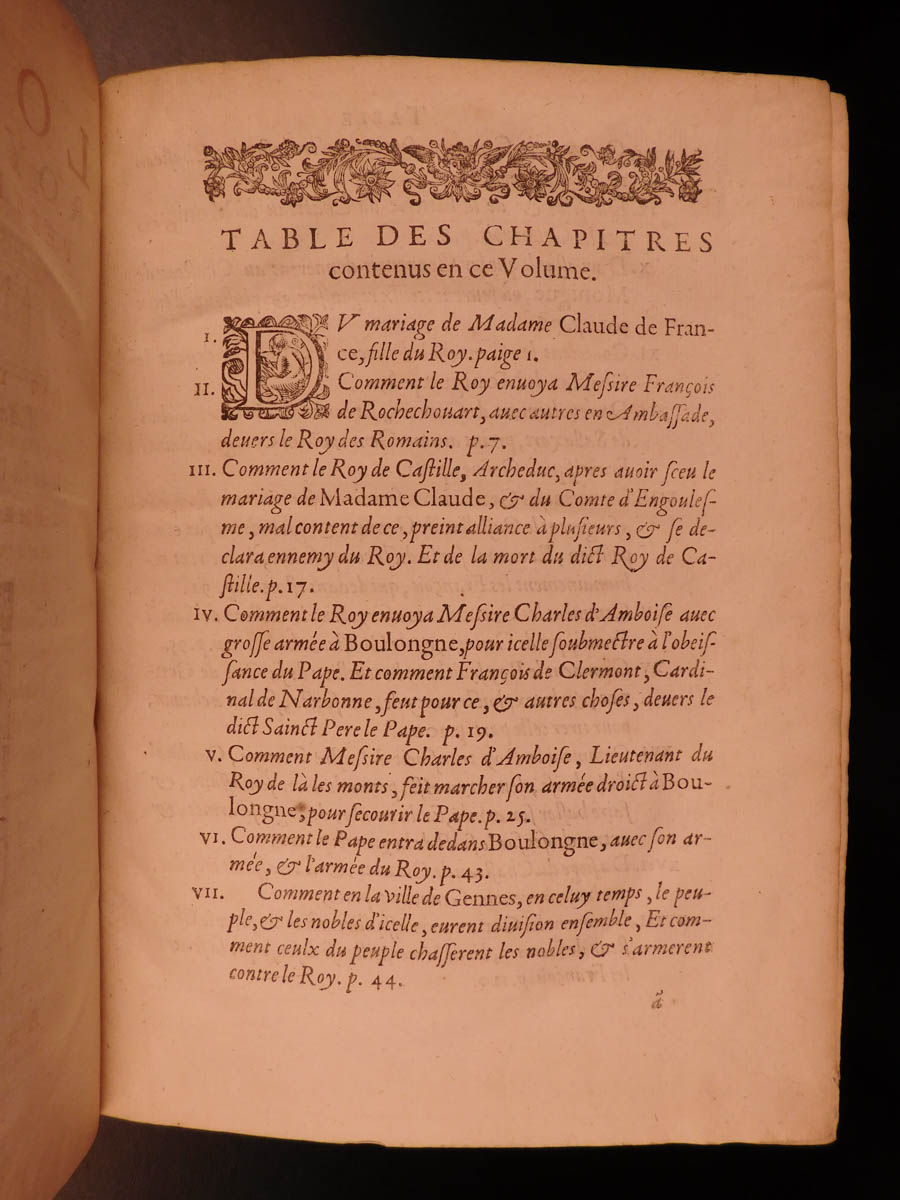 TABLE DES CHAPITRES
contenus en ce Volume.
I. DV mariage de Madame Claude de Fran-
ce, fille du Roy. paige 1.
II. Comment le Roy enuoya Meſsire François
de Rochechouart, auec autres en Ambaſſade,
deuers le Roy des Romains. p. 7.
III. Comment le Roy de Caſtille, Archeduc, apres auoir ſceu le
mariage de Madame Claude, & du Comte d'Engouleſ-
me, mal content de ce, preint alliance à pluſieurs, & ſe de-
clara ennemy du Roy. Et de la mort du dict Roy de Ca-
ſtille. p. 17.
IV. Comment le Roy enuoya Meſsire Charles d'Amboiſe auec
groſſe armée à Boulongne, pour icelle ſoubmectre à l'obeiſ-
ſance du Pape. Et comment François de Clermont, Cardi-
nal de Narbonne, feut pour ce, & autres choſes, deuers le
dict Sainct Pere le Pape. p. 19.
V. Comment Meſsire Charles d'Amboiſe, Lieutenant du
Roy de là les monts, feit marcher ſon armée droict à Bou-
longne, pour ſecourir le Pape. p. 25.
VI. Comment le Pape entra dedans Boulongne, auec ſon ar-
mée, & l'armée du Roy. p. 43.
VII. Comment en la ville de Gennes, en celuy temps, le peu-
ple, & les nobles d'icelle, eurent diuiſion enſemble, Et com-
ment ceulx du peuple chaſſerent les nobles, & s'armerent
contre le Roy. p. 44.
ã